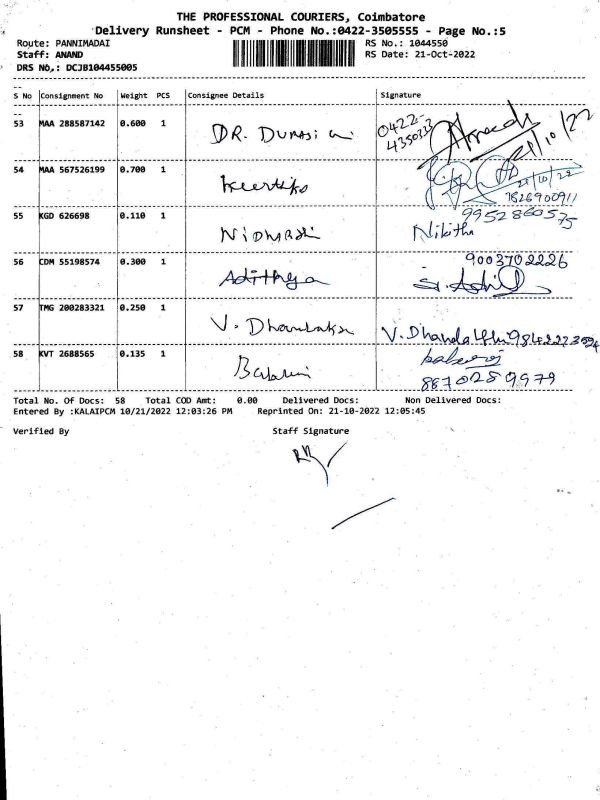 THE PROFESSIONAL COURIERS, Coimbatore
Delivery Runsheet - PCM - Phone No.:0422-3505555 - Page No.:5
Route: PANNIMADAI RS No.: 1044550
Staff: ANAND RS Date: 21-Oct-2022
DRS No.: DCJB104455005
S No Consignment No Weight PCS Consignee Details Signature
53 MAA 288587142 0.600 1 DR. 0422-
4350333 21/10/22
54 MAA 567526199 0.700 1 Keerthika 21/10/22
55 KGD 626698 0.110 1 9952860575
Nikitha
56 CDM 55198574 0.300 1 Adithya 9003702226
57 TMG 200283321 0.250 1 V. V.
58 KVT 2688565 0.135 1
8870289979
Total No. Of Docs: 58 Total COD Amt: 0.00 Delivered Docs: Non Delivered Docs:
Entered By :KALAIPCM 10/21/2022 12:03:26 PM Reprinted On: 21-10-2022 12:05:45
Verified By Staff Signature